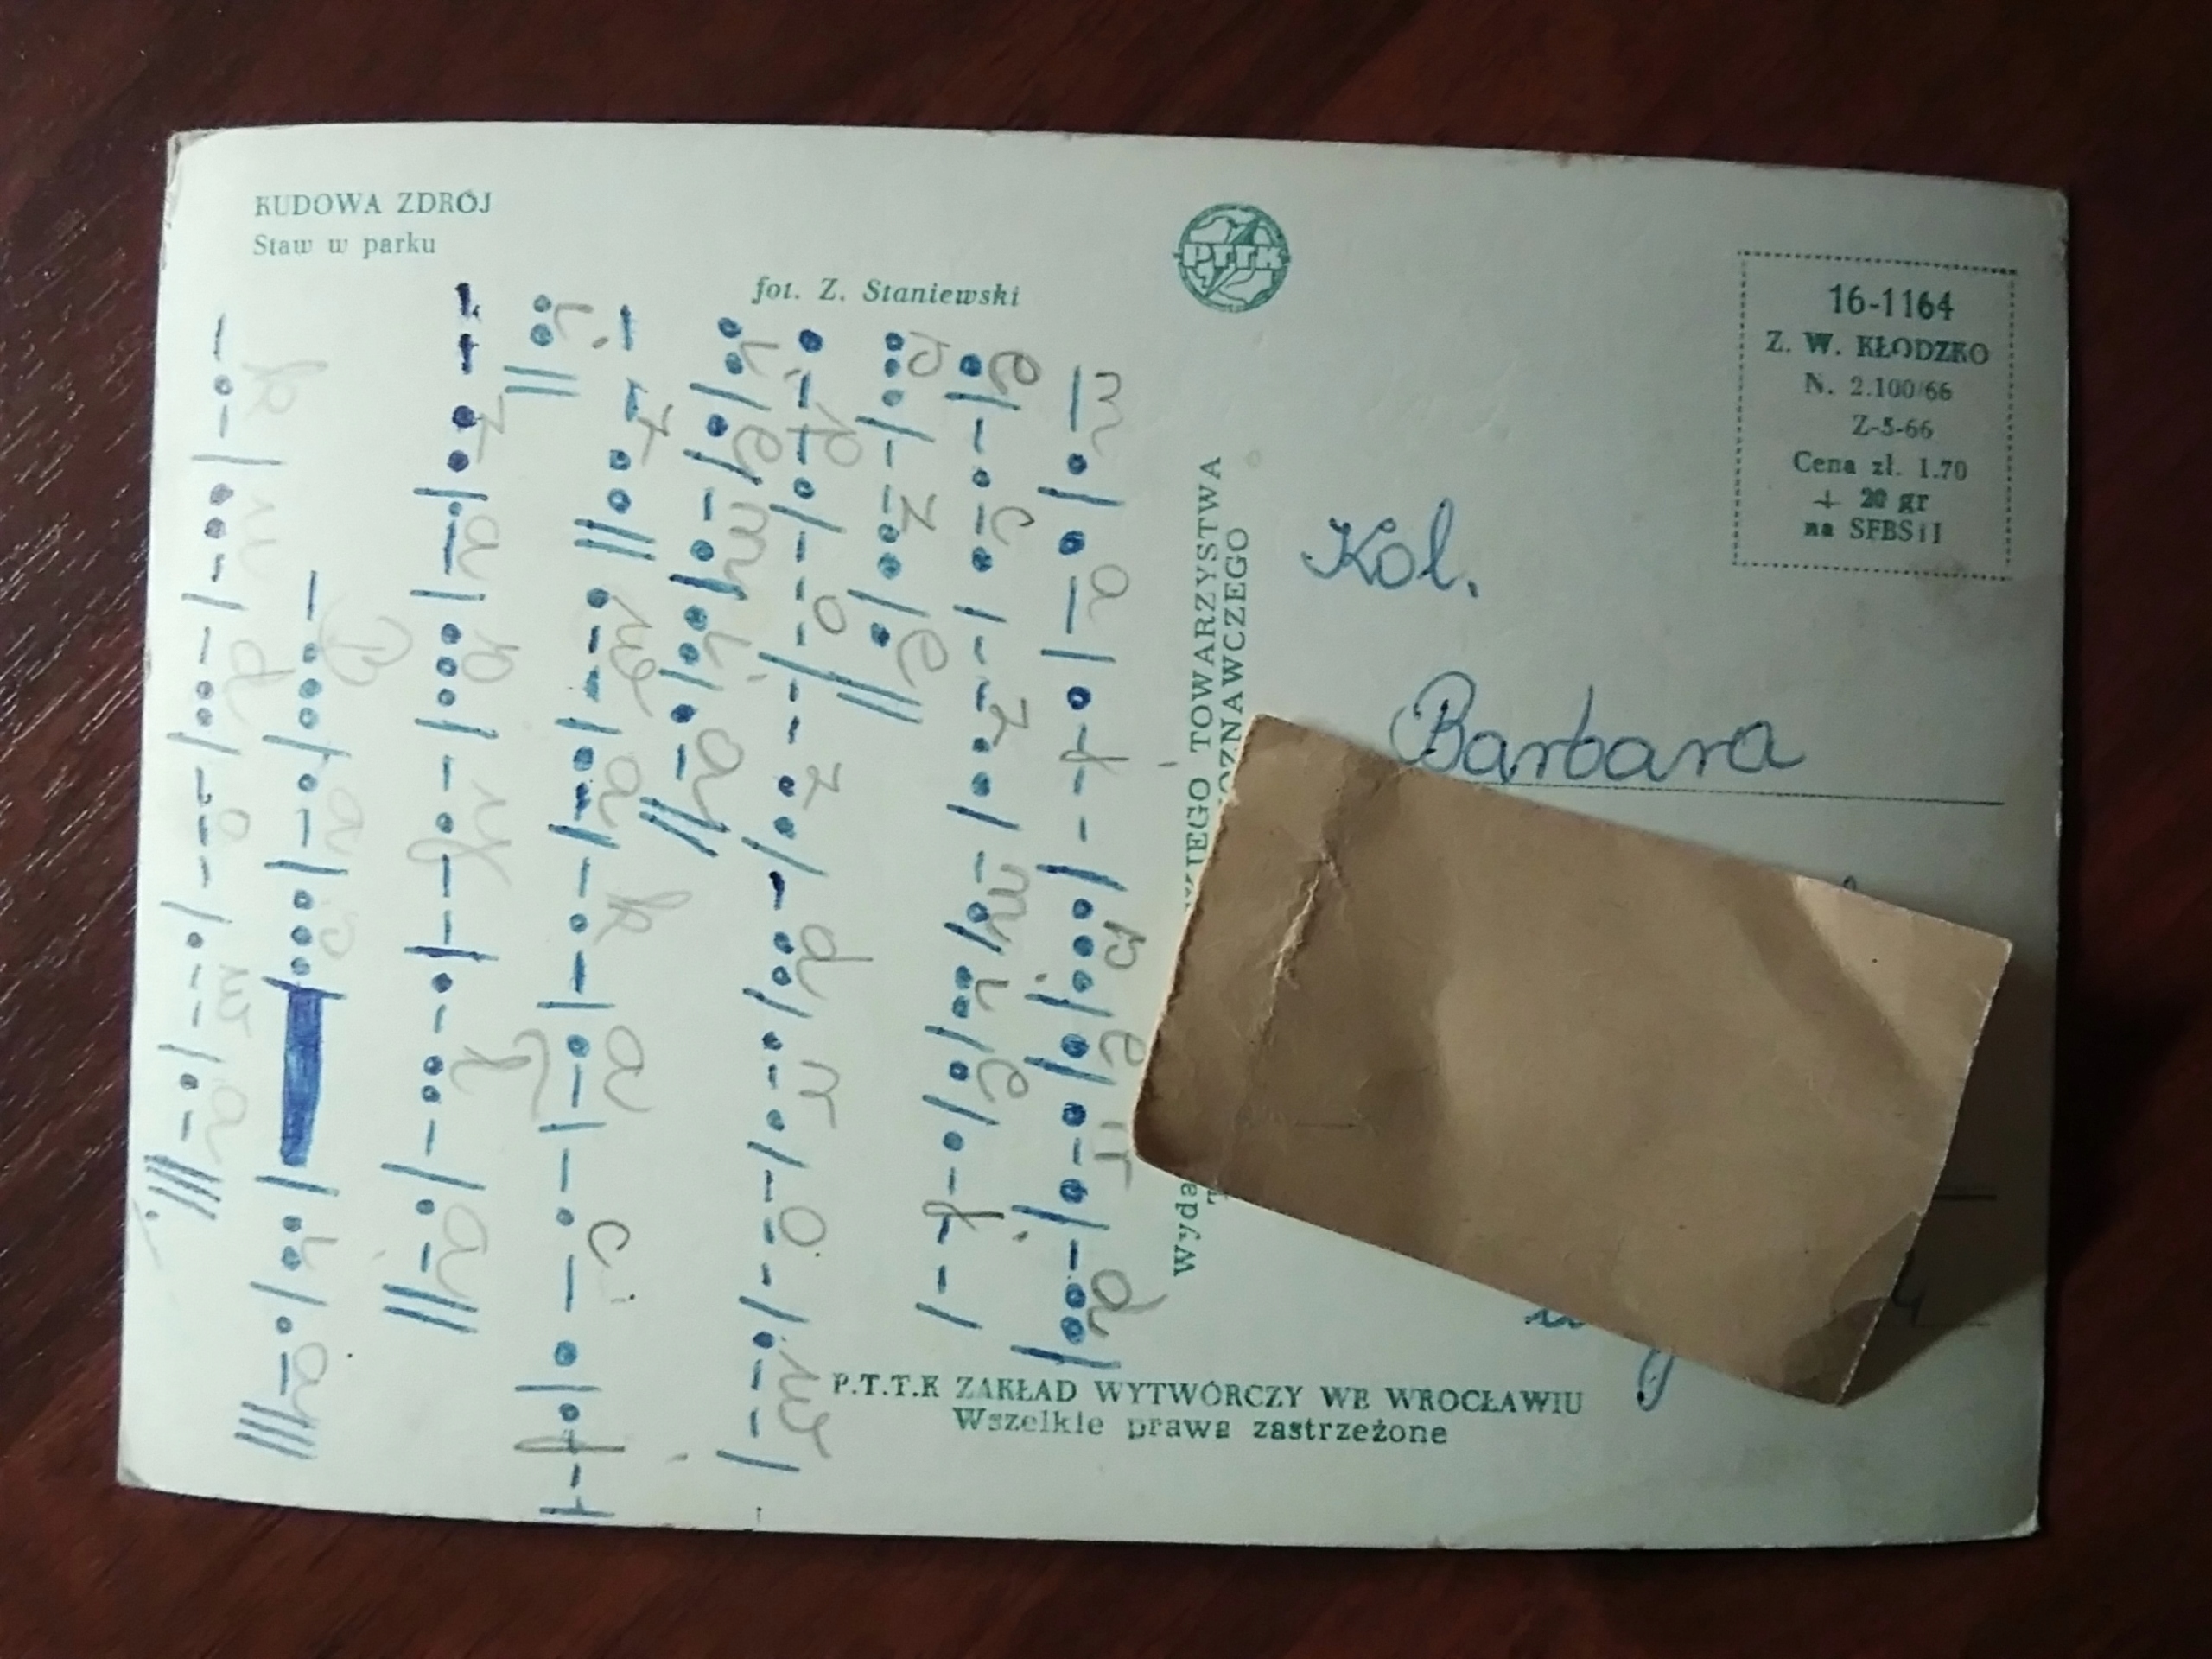 KUDOWA ZDRÓJ
Staw w parku
fot. Z. Staniewski
PTTK
16-1164
Z. W. KŁODZKO
N. 2.100/66
Z-5-66
Cena zł. 1.70
+ 20 gr
na SFBSiI
Kol.
Barbara
n a j s e r d
-. / .- / .--- / ... / . / .-. / -.. /
e c z n i e j
. / -.-. / --.. / -. / .. / . / .--- /
s z e
... / --.. / . ///
p o z d r o w
.--. / --- / --.. / -.. / .-. / --- / .-- /
i e n i a
.. / . / -. / .. / .- ///
z w a k a c j
--.. /// .-- / .- / -.- / .- / -.-. / .--- /
i
.. //
z a s y ł a
--.. / .- / ... / -.-- / .-..- / .- ///
B a s i a
-... / .- / ... / .. / .- ////
k u d o w a
-.- / ..- / -.. / --- / .-- / .- ///.
TOWARZYSTWA
P.T.T.K ZAKŁAD WYTWÓRCZY WE WROCŁAWIU
Wszelkie prawa zastrzeżone